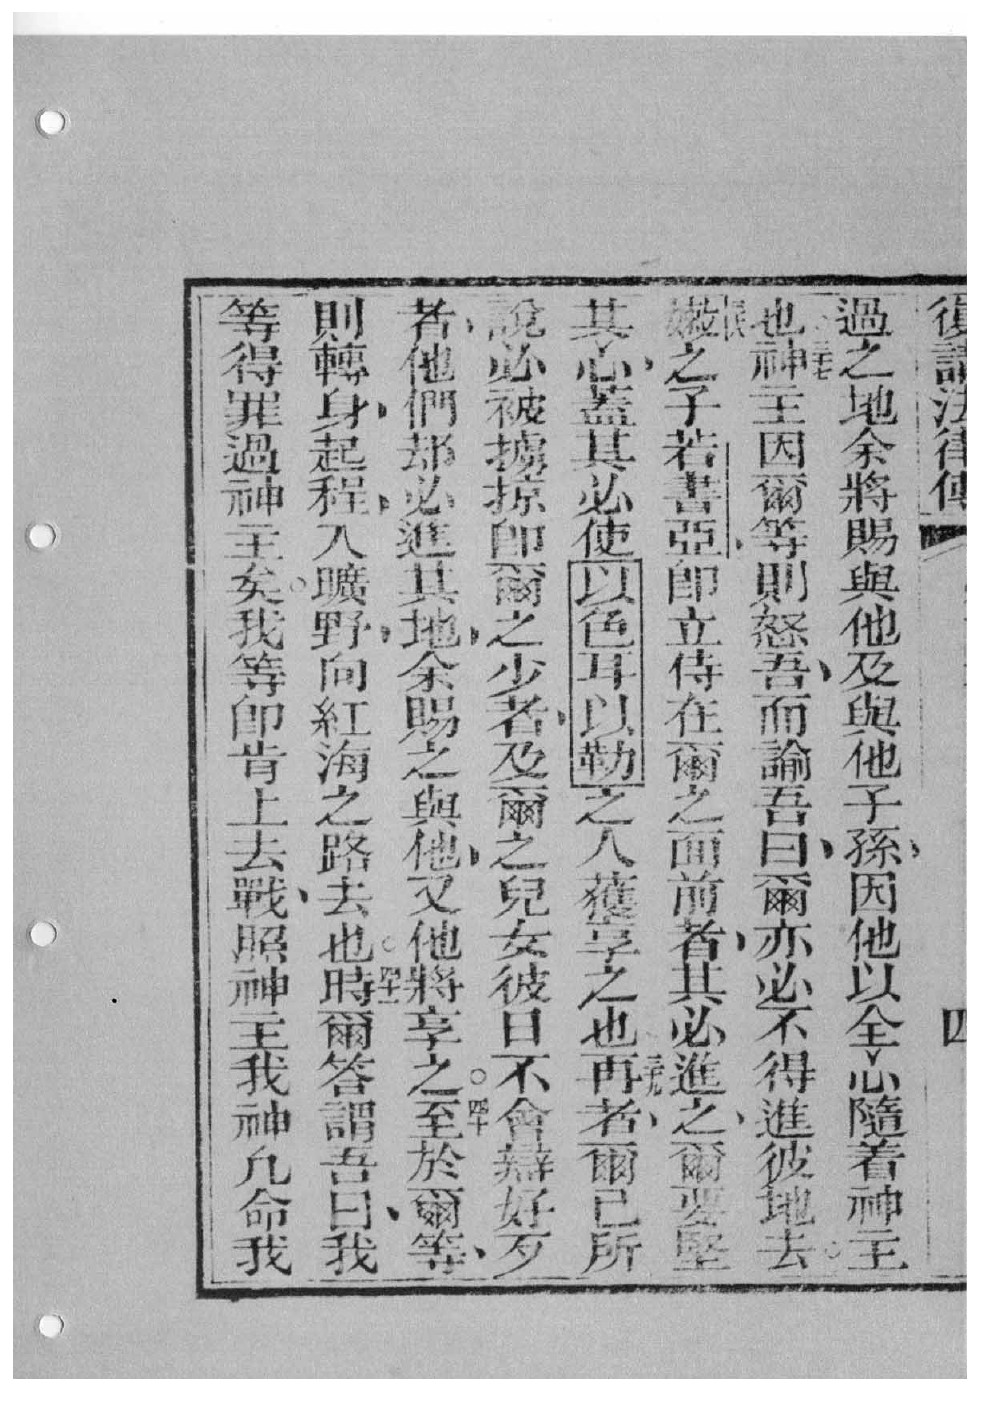 復講法律傳 四
過之地余將賜與他及與他子孫因他以全心隨着神主
也三十七神主因爾等則怒吾而諭吾曰爾亦必不得進彼地去
嫩之子若書亞卽立侍在爾之面前者其必進之爾要堅
其心蓋其必使以色耳以勒之人獲享之也三十九再者爾已所
說必被擄掠卽爾之少者及爾之兒女彼日不會辯好歹
者他們却必進其地余賜之與他又他將享之四十至於爾等
則轉身起程入曠野向紅海之路去也四十一時爾答謂吾曰我
等得罪過神主矣我等卽肯上去戰照神主我神凡命我